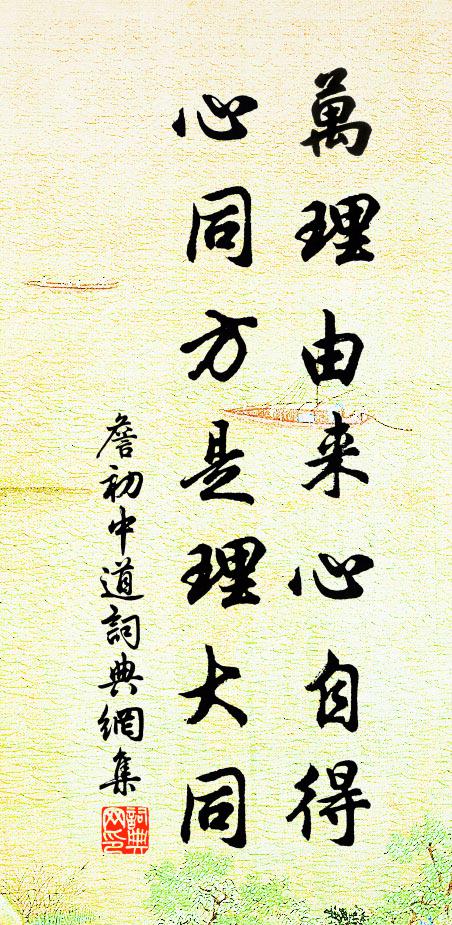 萬理由来心自得
心同方是理大同
詹初中道詞典網集
詞典网印